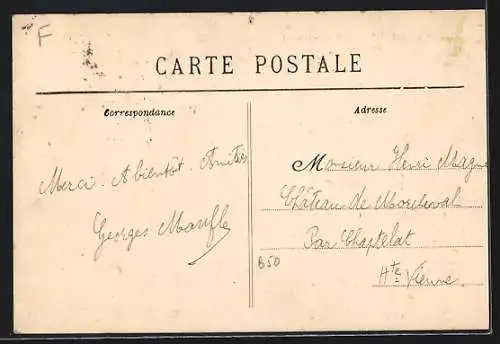 F
CARTE POSTALE
Correspondance
Adresse
Merci. A bientôt. Amitiés
Georges
Monsieur Henri Magne
Château de
Par Chaptelat
Hte Vienne.
B50